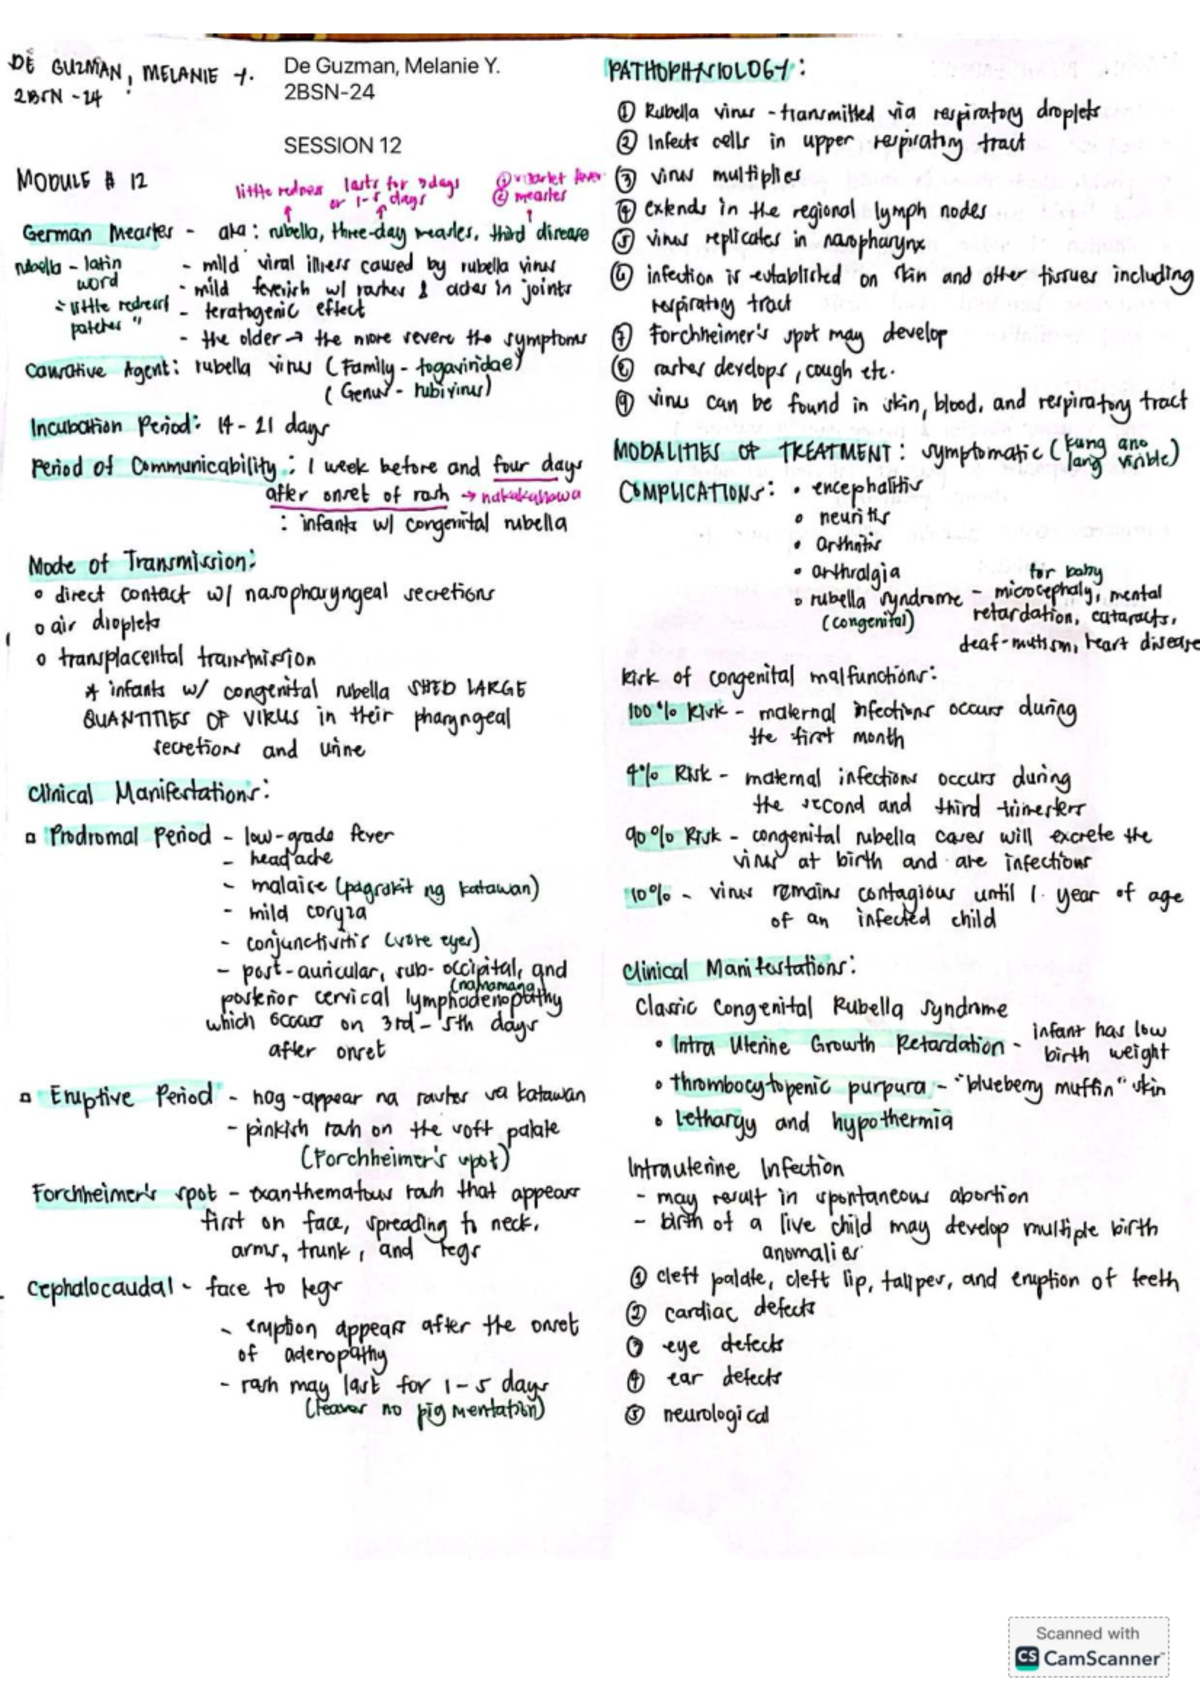 DE GUZMAN, MELANIE Y.
2BSN-24
De Guzman, Melanie Y.
2BSN-24
SESSION 12
MODULE # 12
little redness
lasts for 3 days
or 1-5 days
① scarlet fever
② measles
German Measles - aka: rubella, three-day measles, third disease
rubella - latin
word
= "little redness/
patches"
- mild viral illness caused by rubella virus
- mild feverish w/ rashes & aches in joints
- teratogenic effect
- the older → the more severe the symptoms
Causative Agent: rubella virus (Family - togaviridae)
(Genus - rubivirus)
Incubation Period: 14-21 days
Period of Communicability: 1 week before and four days
after onset of rash → nakakahawa
: infants w/ congenital rubella
Mode of Transmission:
• direct contact w/ nasopharyngeal secretions
• air droplets
• transplacental transmission
* infants w/ congenital rubella SHED LARGE
QUANTITIES OF VIRUS in their pharyngeal
secretions and urine
Clinical Manifestations:
□ Prodromal Period - low-grade fever
- headache
- malaise (pagsakit ng katawan)
- mild coryza
- conjunctivitis (sore eyes)
- post-auricular, sub-occipital, and
(namamaga)
posterior cervical lymphadenopathy
which occurs on 3rd-5th days
after onset
□ Eruptive Period - nag-appear na rashes sa katawan
- pinkish rash on the soft palate
(Forchheimer's spot)
Forchheimer's spot - exanthematous rash that appears
first on face, spreading to neck,
arms, trunk, and legs
Cephalocaudal - face to legs
- eruption appears after the onset
of adenopathy
- rash may last for 1-5 days
(leaves no pigmentation)
PATHOPHYSIOLOGY:
① Rubella virus - transmitted via respiratory droplets
② Infects cells in upper respiratory tract
③ virus multiplies
④ extends in the regional lymph nodes
⑤ virus replicates in nasopharynx
⑥ infection is established on skin and other tissues including
respiratory tract
⑦ Forchheimer's spot may develop
⑧ rashes develops, cough etc.
⑨ virus can be found in skin, blood, and respiratory tract
MODALITIES OF TREATMENT: symptomatic (kung ano
lang visible)
COMPLICATIONS: • encephalitis
• neuritis
• arthritis
• arthralgia
for baby
• rubella syndrome - microcephaly, mental
(congenital) retardation, cataracts,
deaf-mutism, heart disease
Risk of congenital malfunctions:
100% Risk - maternal infections occurs during
the first month
4% Risk - maternal infections occurs during
the second and third trimesters
90% Risk - congenital rubella cases will excrete the
virus at birth and are infections
10% - virus remains contagious until 1 year of age
of an infected child
Clinical Manifestations:
Classic Congenital Rubella Syndrome
• Intra Uterine Growth Retardation - infant has low
birth weight
• thrombocytopenic purpura - "blueberry muffin" skin
• Lethargy and hypothermia
Intrauterine Infection
- may result in spontaneous abortion
- birth of a live child may develop multiple birth
anomalies
① cleft palate, cleft lip, talipes, and eruption of teeth
② cardiac defects
③ eye defects
④ ear defects
⑤ neurological
Scanned with
CS CamScanner